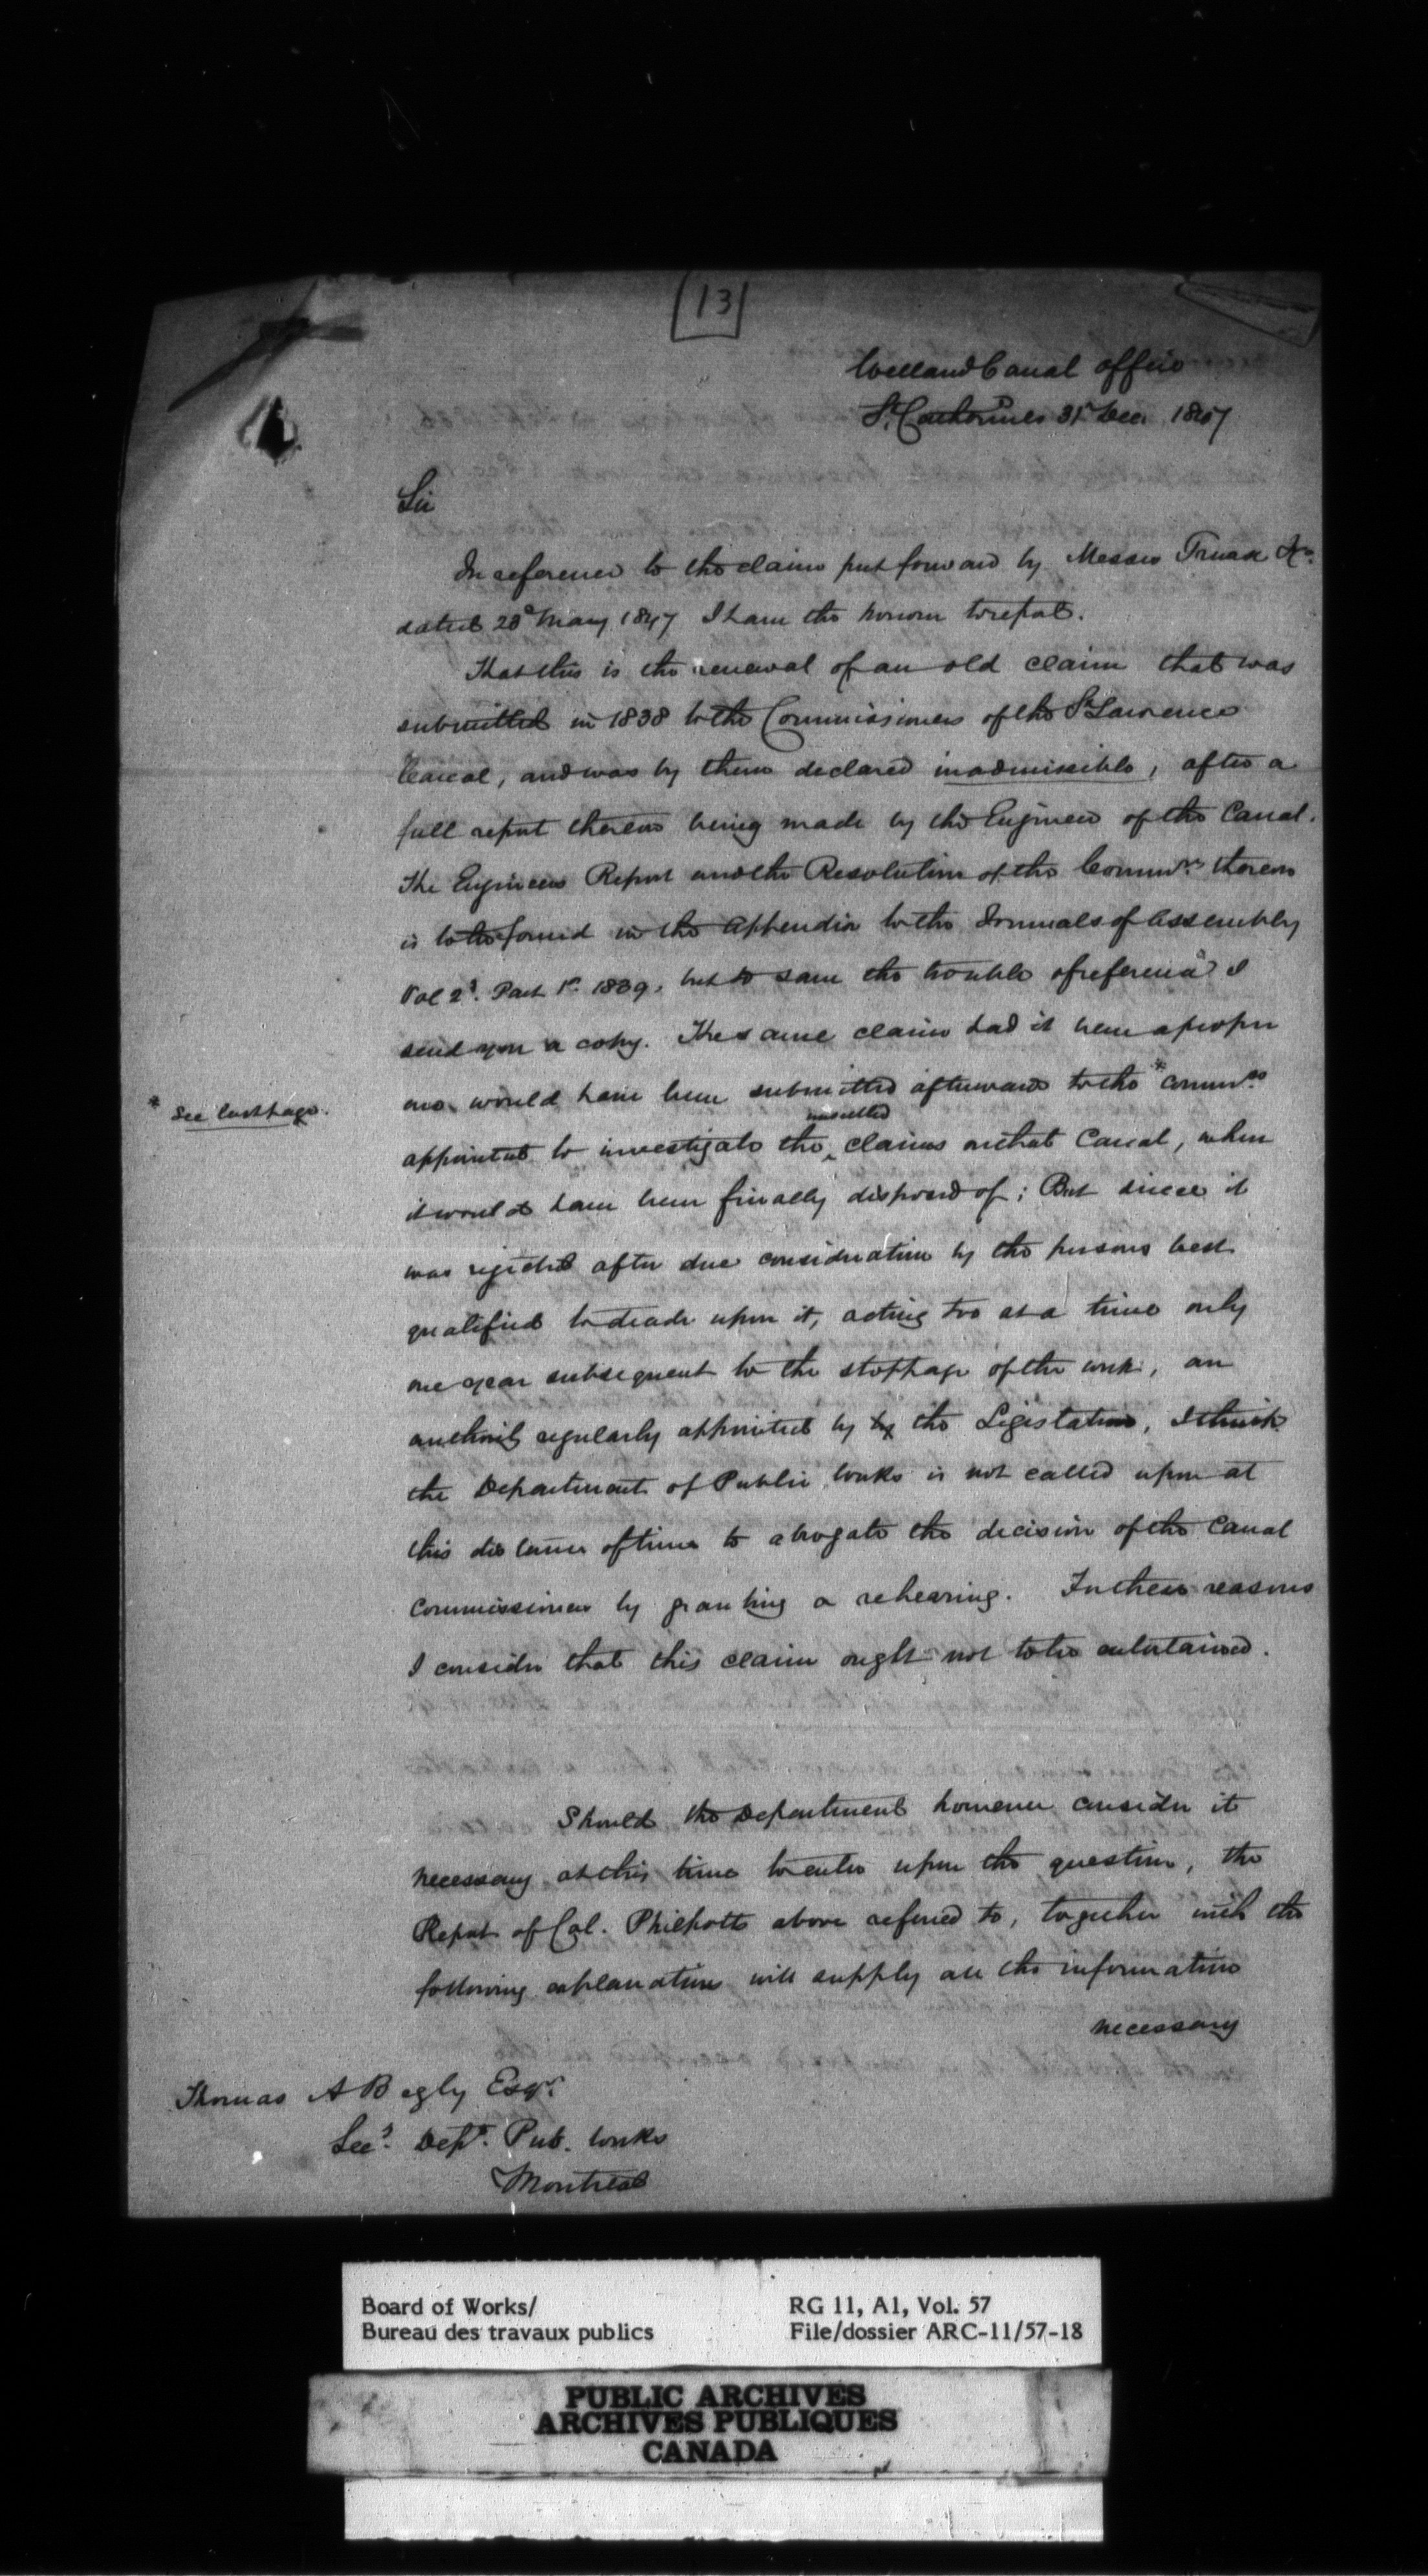 13
Welland Canal Office
St. Catharines 31st Decr. 1847
Sir
In reference to the claim put forward by Messrs Truax &c.
dated 28th May 1847 I have the honor to report.
That this is the renewal of an old claim that was
submitted in 1838 to the Commissioners of the St. Lawrence
Canal, and was by them declared inadmissible, after a
full report thereon being made by the Engineer of the Canal.
The Engineers Report and the Resolution of the Commrs. thereon
is to be found in the Appendix to the Journals of Assembly
Vol 2d. Part 1st. 1839, but to save the trouble of reference I
send you a copy. The same claim had it been a proper
one would have been submitted afterwards to the * Commrs
* See last page.
appointed to investigate the unsettled claims on that Canal, when
it would have been finally disposed of; But since it
was rejected after due consideration by the persons best
qualified to decide upon it, acting too at a time only
one year subsequent to the stoppage of the work, an
authority regularly appointed by by the Legislature, I think
the Department of Public Works is not called upon at
this distance of time to abrogate the decision of the Canal
Commissioners by granting a rehearing. For these reasons
I consider that this claim ought not to be entertained.
Should the Department however consider it
necessary at this time to enter upon the question, the
Report of Col. Philpotts above referred to, together with the
following explanations will supply all the information
necessary
Thomas A Begly Esqr.
Secy. Dept. Pub. Works
Montreal
Board of Works/
Bureau des travaux publics
RG 11, A1, Vol. 57
File/dossier ARC-11/57-18
PUBLIC ARCHIVES
ARCHIVES PUBLIQUES
CANADA